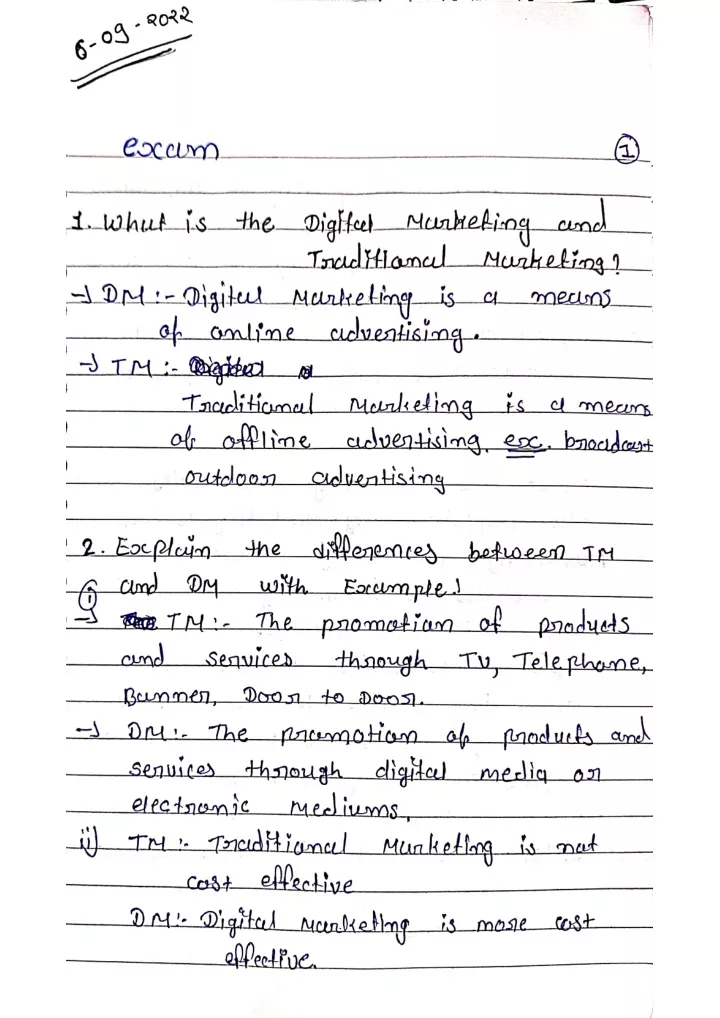 6-09-2022
excam
1
1. What is the Digital Marketing and
Traditional Marketing?
→ DM :- Digital Marketing is a means
of online advertising.
→ TM :-
Traditional Marketing is a means
of offline advertising. exc. broadcast
outdoor advertising
2. Explain the differences between TM
and DM with Example!
i
→ TM :- The promotion of products
and services through TV, Telephone,
Banner, Door to Door.
→ DM :- The promotion of products and
services through digital media or
electronic mediums.
ii) TM :- Traditional Marketing is not
cost effective
DM :- Digital Marketing is more cost
effective.